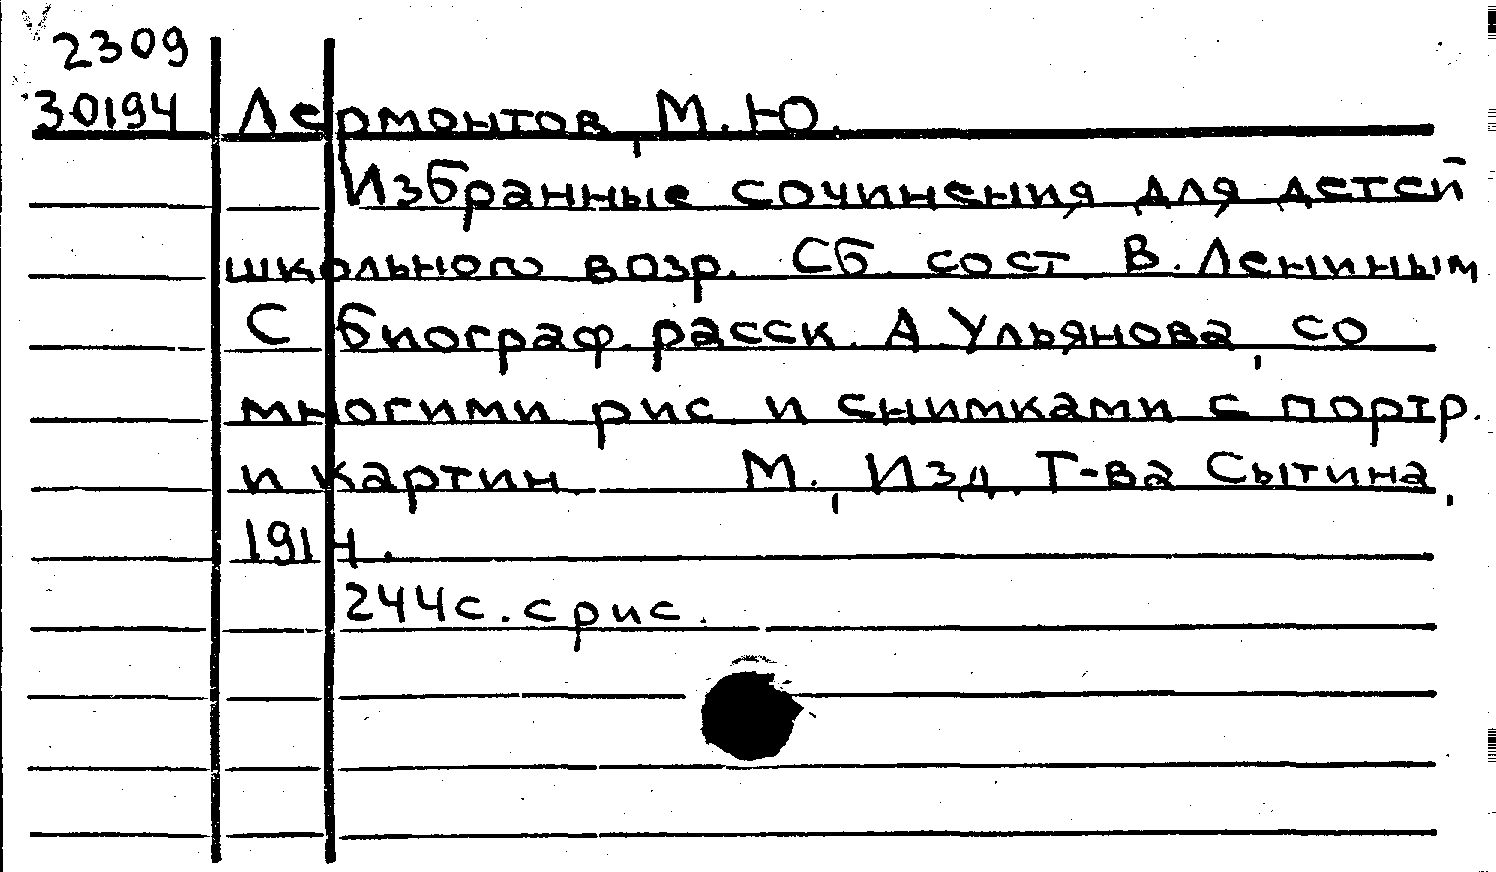 2309
30194 Лермонтов, М. Ю.
Избранные сочинения для детей
школьного возр. Сб. сост В. Лениным
С биограф. расск. А Ульянова, со
многими рис и снимками с портр.
и картин М., Изд. Т-ва Сытина,
1914.
244с. с рис.